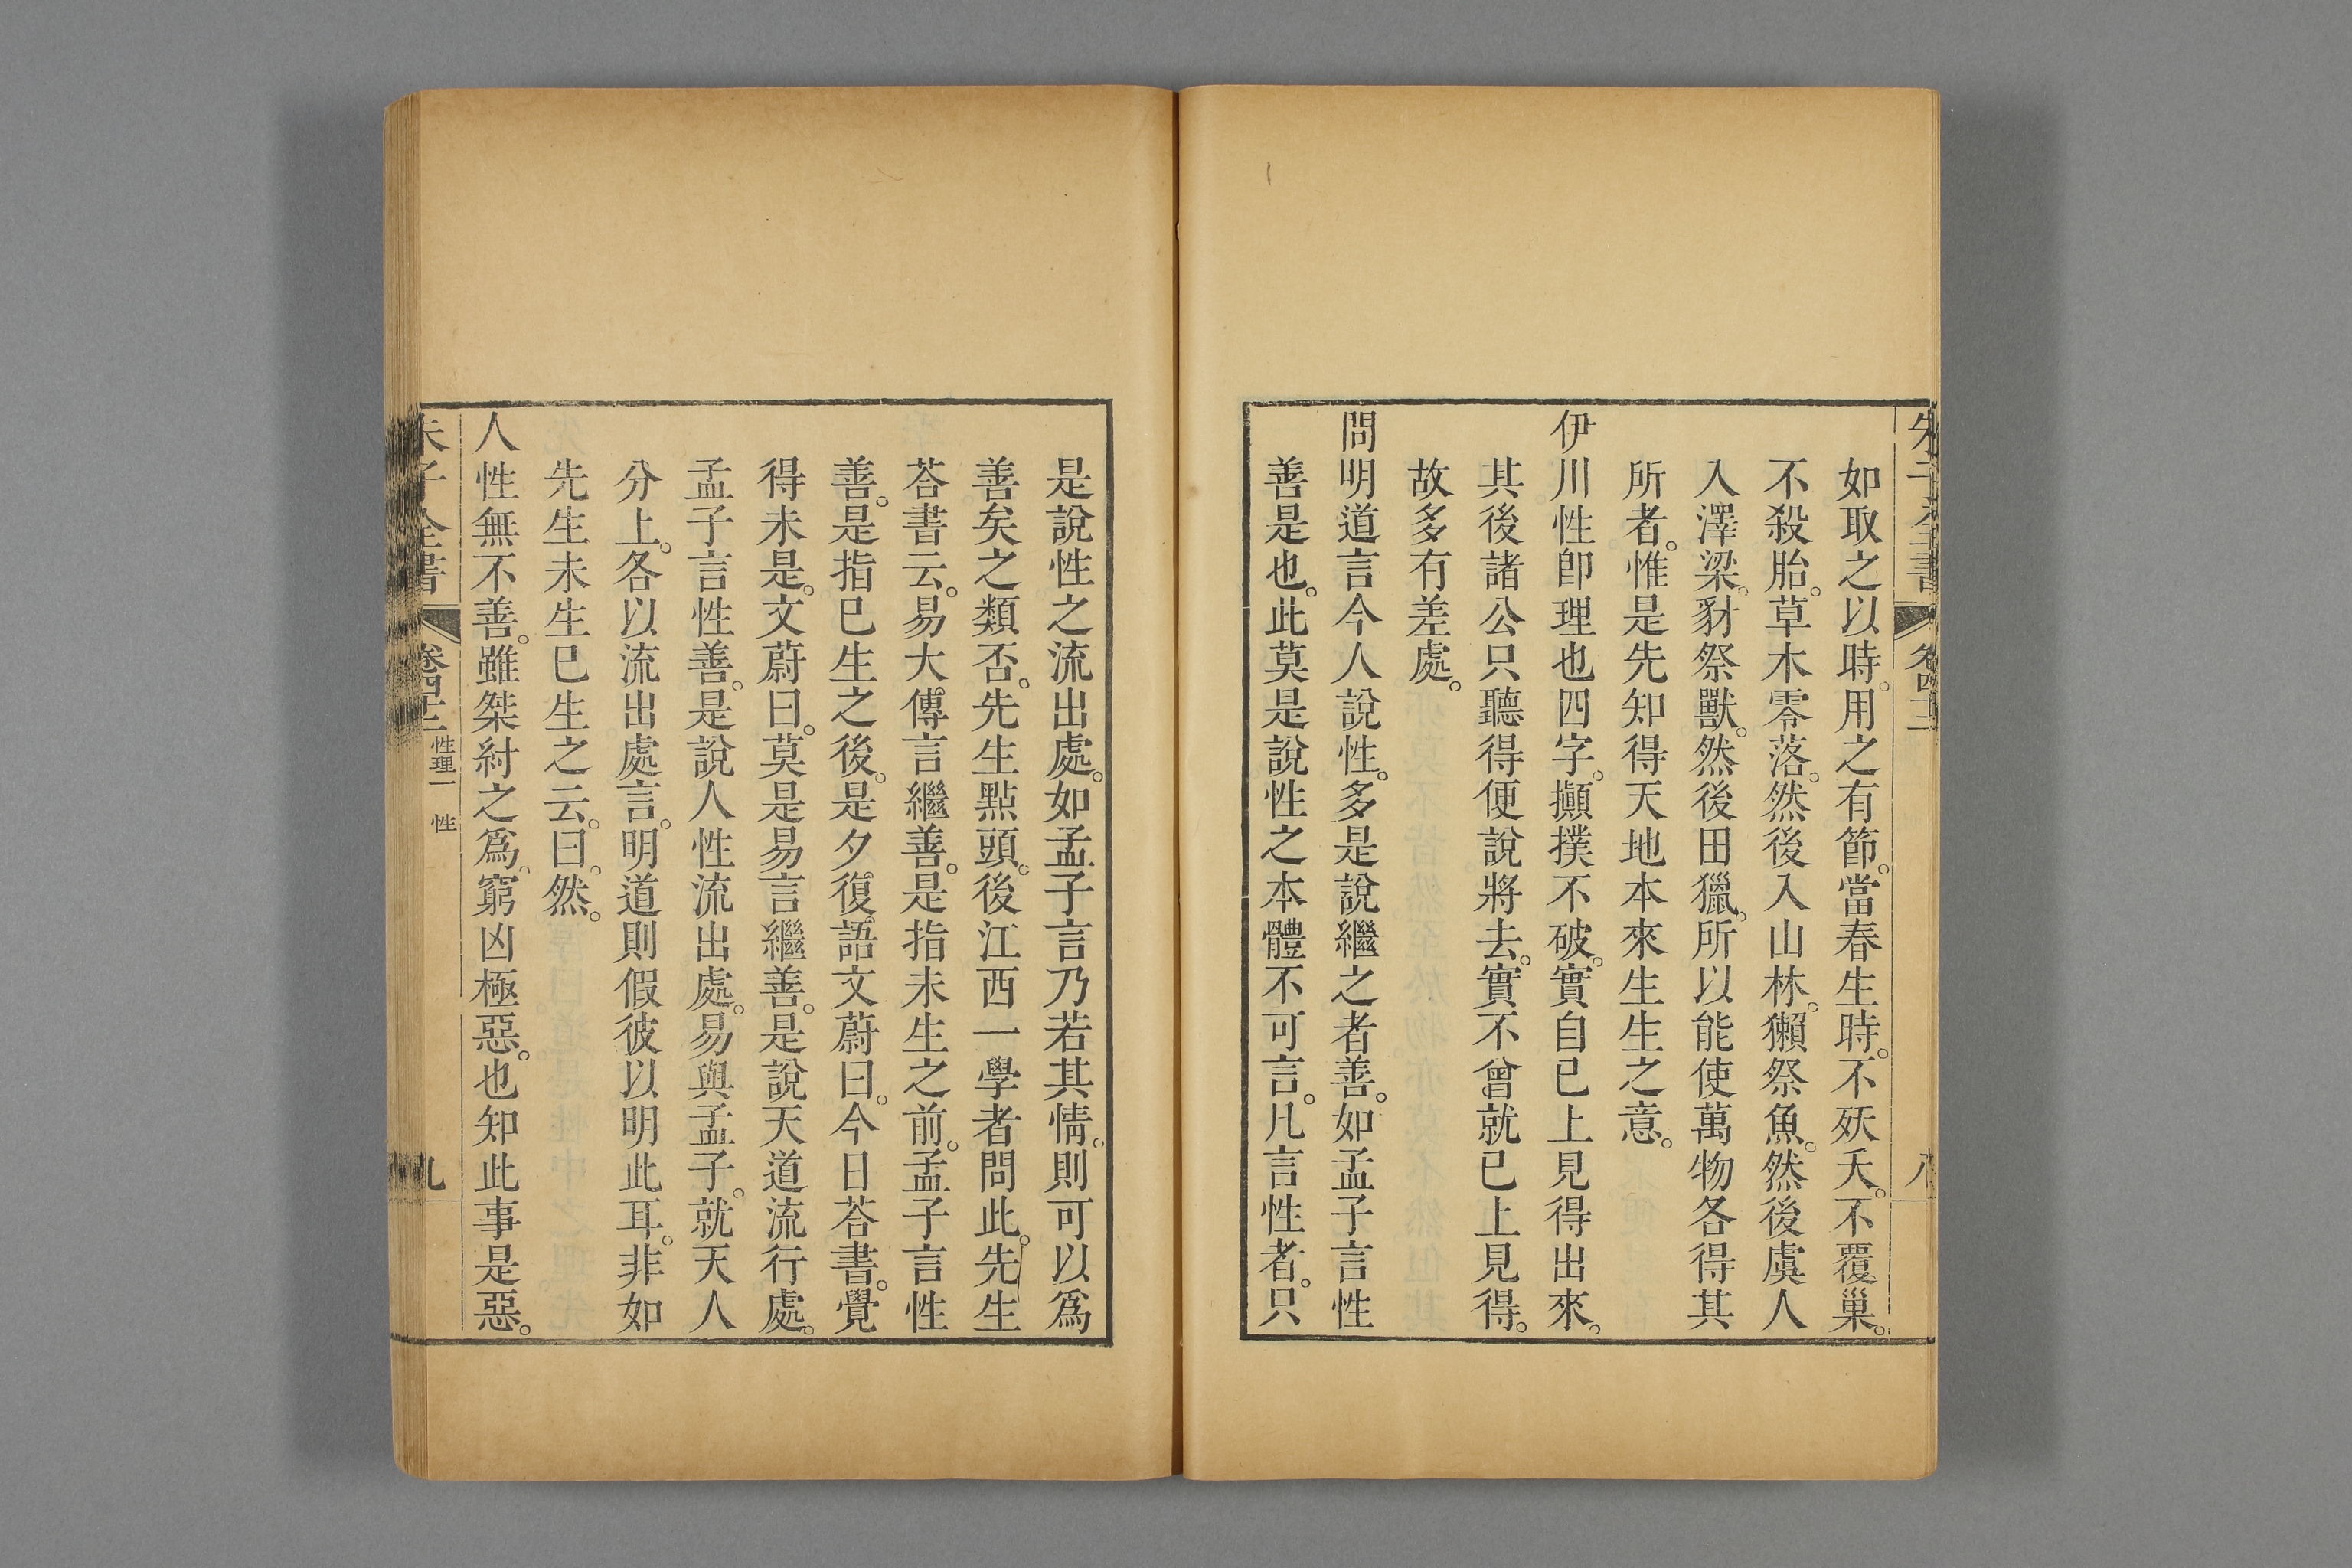 朱子全書 卷四十二 八
如取之以時。用之有節。當春生時。不殀夭。不覆巢。
不殺胎。草木零落。然後入山林。獺祭魚。然後虞人
入澤梁。豺祭獸。然後田獵。所以能使萬物各得其
所者。惟是先知得天地本來生生之意。
伊川性卽理也四字。攧撲不破。實自己上見得出來。
其後諸公只聽得便說將去。實不曾就己上見得。
故多有差處。
問明道言今人說性。多是說繼之者善。如孟子言性
善是也。此莫是說性之本體不可言。凡言性者。只
是說性之流出處。如孟子言乃若其情。則可以爲
善矣之類否。先生點頭。後江西一學者問此。先生
荅書云。易大傳言繼善。是指未生之前。孟子言性
善。是指已生之後。是夕復語文蔚曰。今日荅書。覺
得未是。文蔚曰。莫是易言繼善。是說天道流行處。
孟子言性善。是說人性流出處。易與孟子。就天人
分上。各以流出處言。明道則假彼以明此耳。非如
先生未生已生之云。曰。然。
人性無不善。雖桀紂之爲。窮凶極惡。也知此事是惡。
朱子全書 卷四十二 性理一 性 九